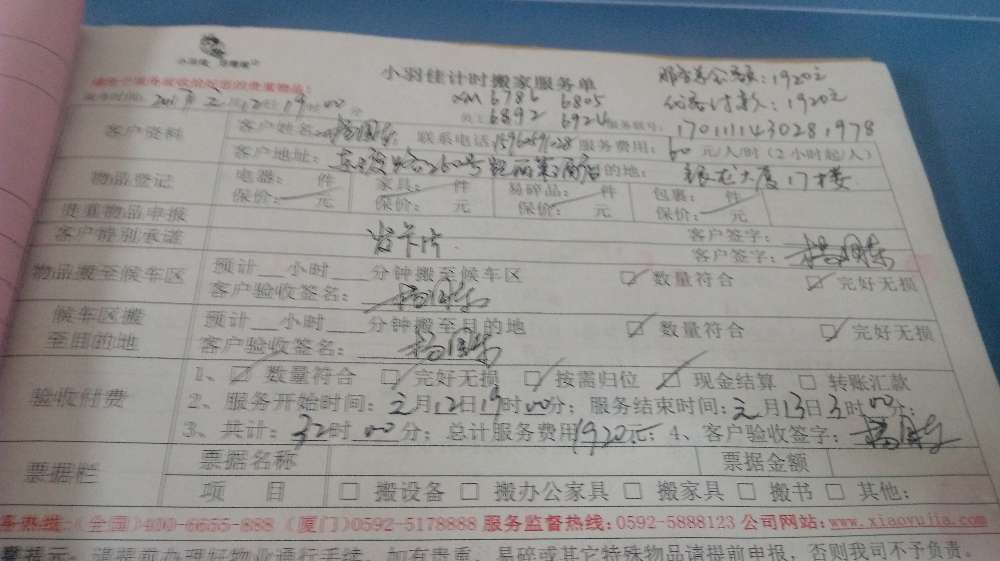 小羽佳计时搬家服务单
服务总金额：1920元
优惠付款：1920元
XM 6786 6805
员工 6892 6924 服务号：170111143028 1978
客户资料
客户姓名 联系电话 服务费用：60 元/人/时（2小时起/人）
客户地址： 的地：银龙大厦17楼
物品登记
电器： 件 家具： 件 易碎品： 件 包裹： 件
保价： 元 保价： 元 保价： 元 保价： 元
贵重物品申报 客户签字：
客户特别承诺 发卡片 客户签字：
物品搬至候车区
预计__小时___分钟搬至候车区 ☑ 数量符合 ☑ 完好无损
客户验收签名：
候车区搬至目的地
预计__小时___分钟搬至目的地 ☑ 数量符合 ☑ 完好无损
客户验收签名：
验收付费
1、☑ 数量符合 ☑ 完好无损 ☑ 按需归位 ☑ 现金结算 □ 转账汇款
2、服务开始时间：元月12日19时00分；服务结束时间：元月13日3时00分；
3、共计：32时00分；总计服务费用1920元；4、客户验收签字：
票据栏
票据名称 票据金额
项 目 □ 搬设备 □ 搬办公家具 □ 搬家具 □ 搬书 □ 其他：
务热线：(全国)400-6655-888 (厦门)0592-5178888 服务监督热线：0592-5888123 公司网站：www.xiaoyujia.com
请提前办理好物业通行手续，如有贵重、易碎或其它特殊物品请提前申报，否则我司不予负责。